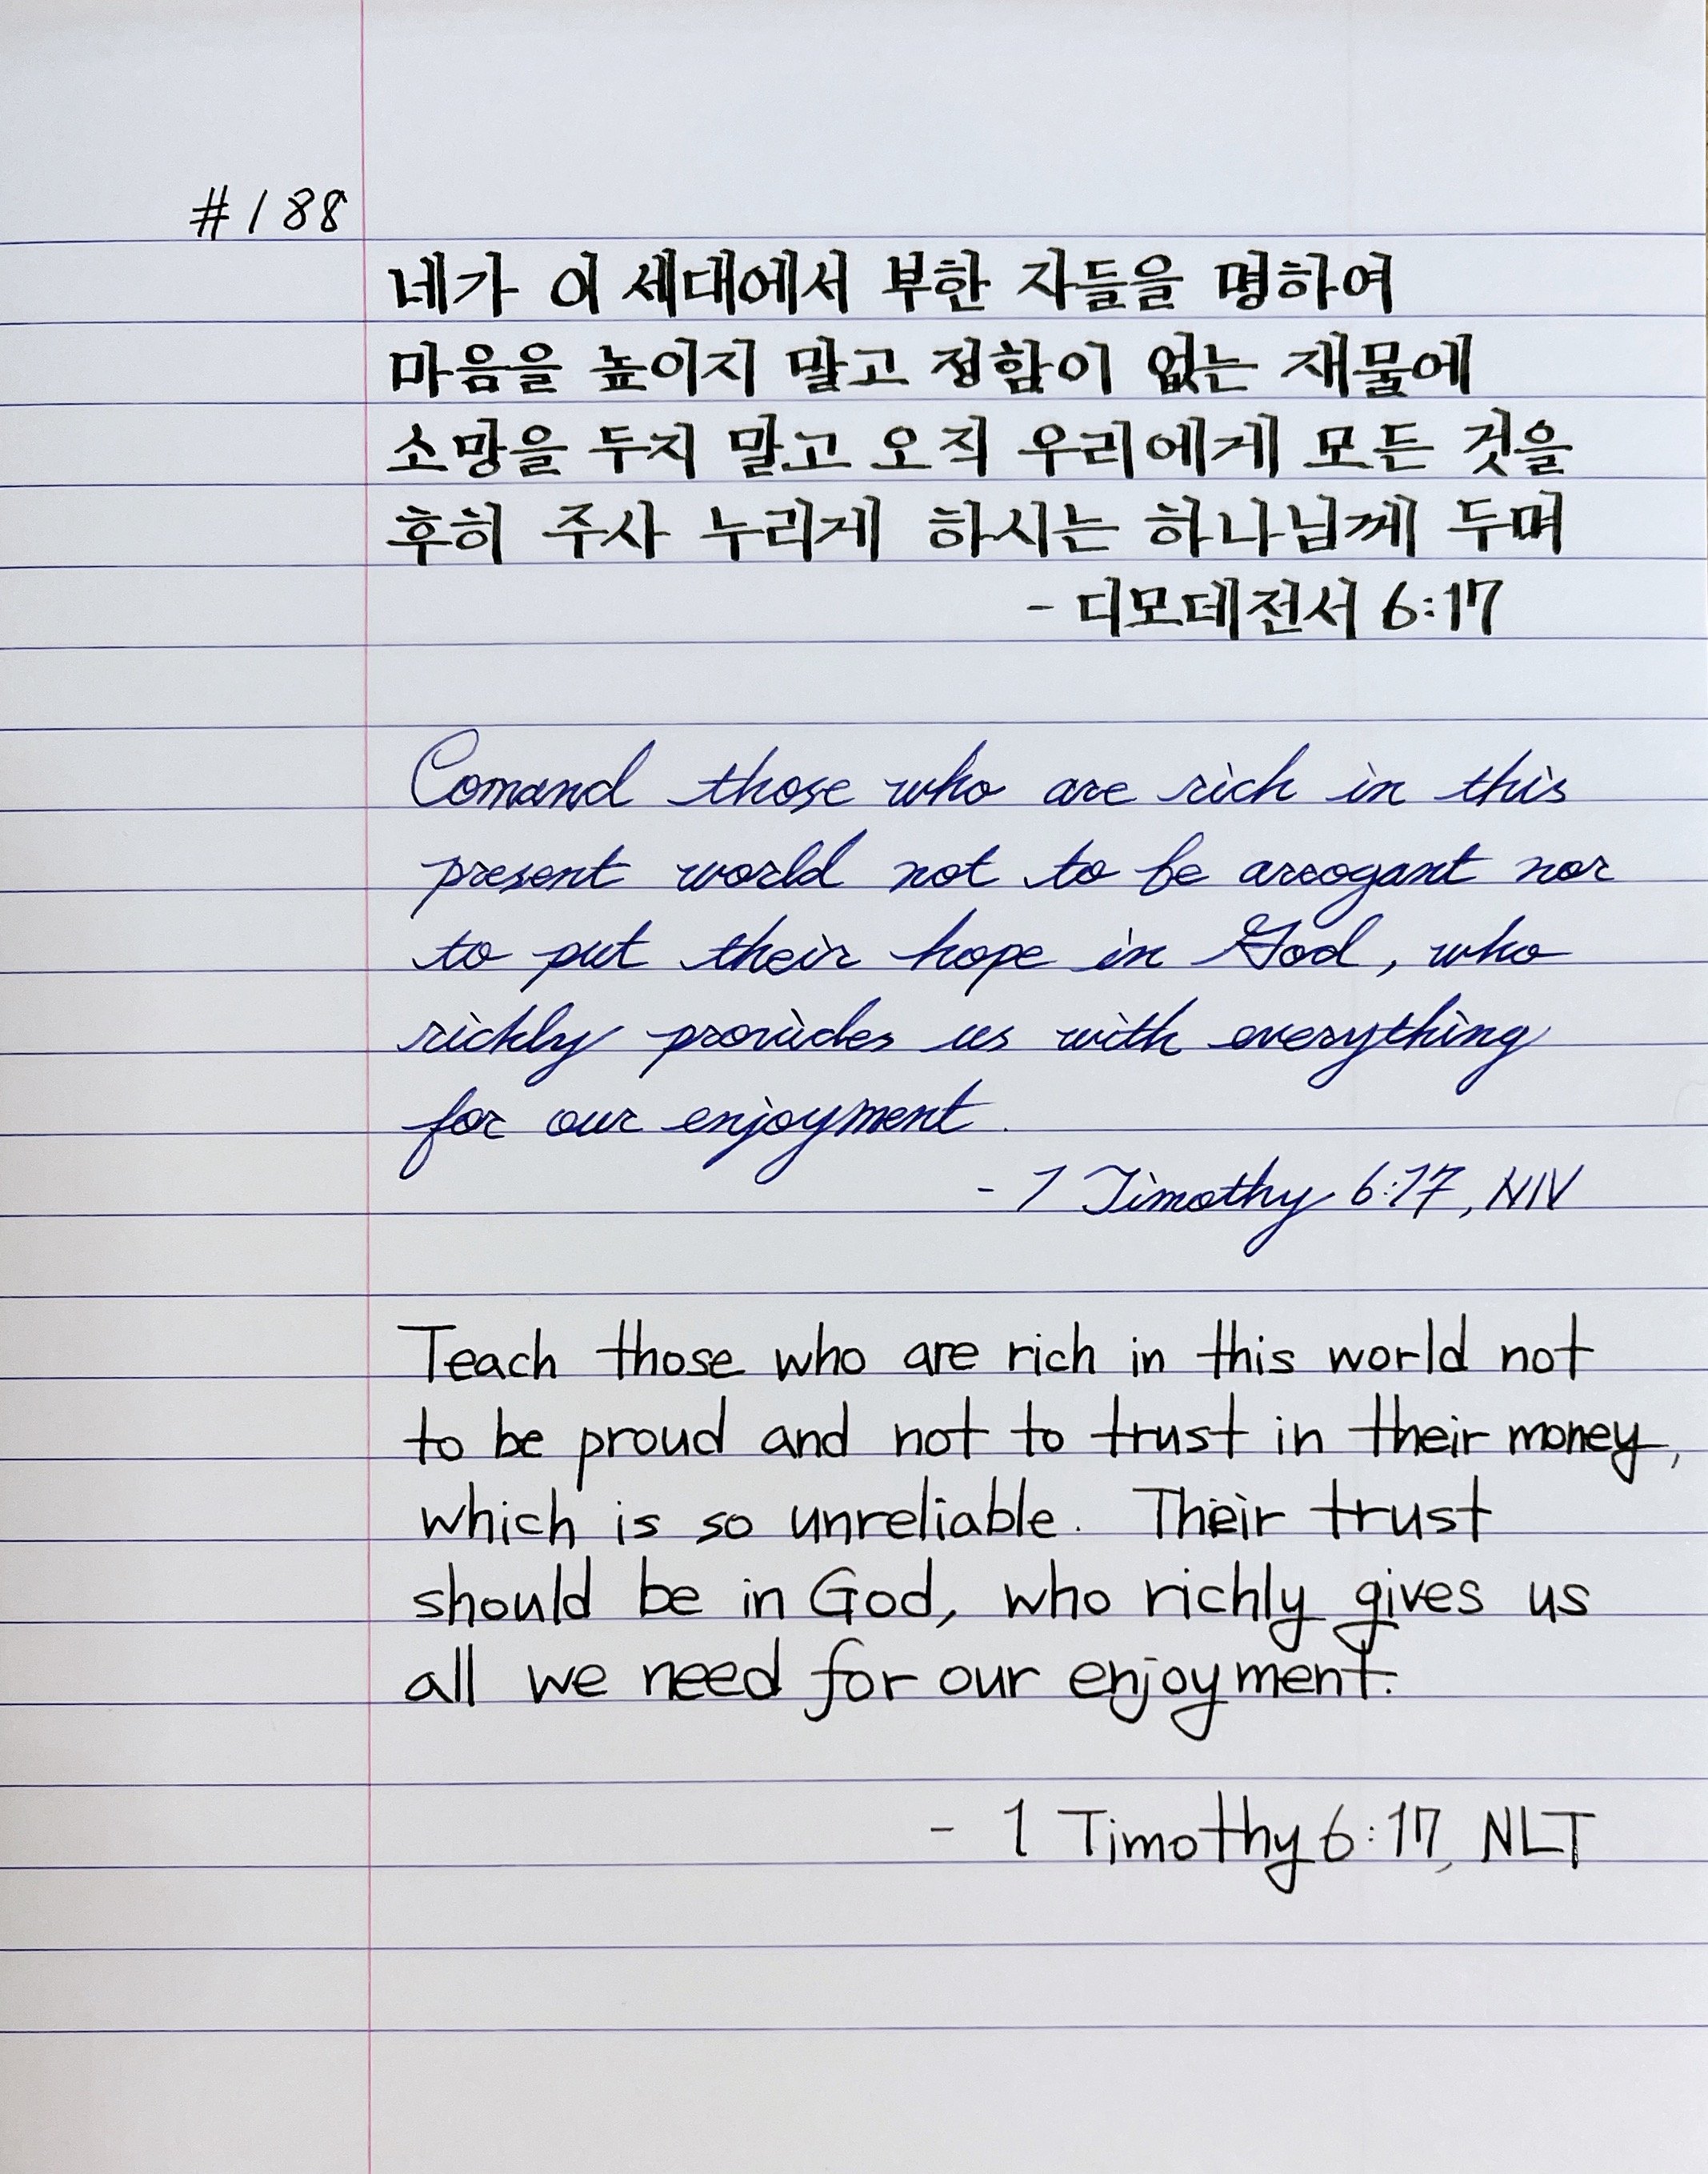 #188
네가 이 세대에서 부한 자들을 명하여
마음을 높이지 말고 정함이 없는 재물에
소망을 두지 말고 오직 우리에게 모든 것을
후히 주사 누리게 하시는 하나님께 두며
- 디모데전서 6:17
Comand those who are rich in this
present world not to be arrogant nor
to put their hope in God, who
richly provides us with everything
for our enjoyment.
- 1 Timothy 6:17, NIV
Teach those who are rich in this world not
to be proud and not to trust in their money,
which is so unreliable. Their trust
should be in God, who richly gives us
all we need for our enjoyment.
- 1 Timothy 6:17, NLT